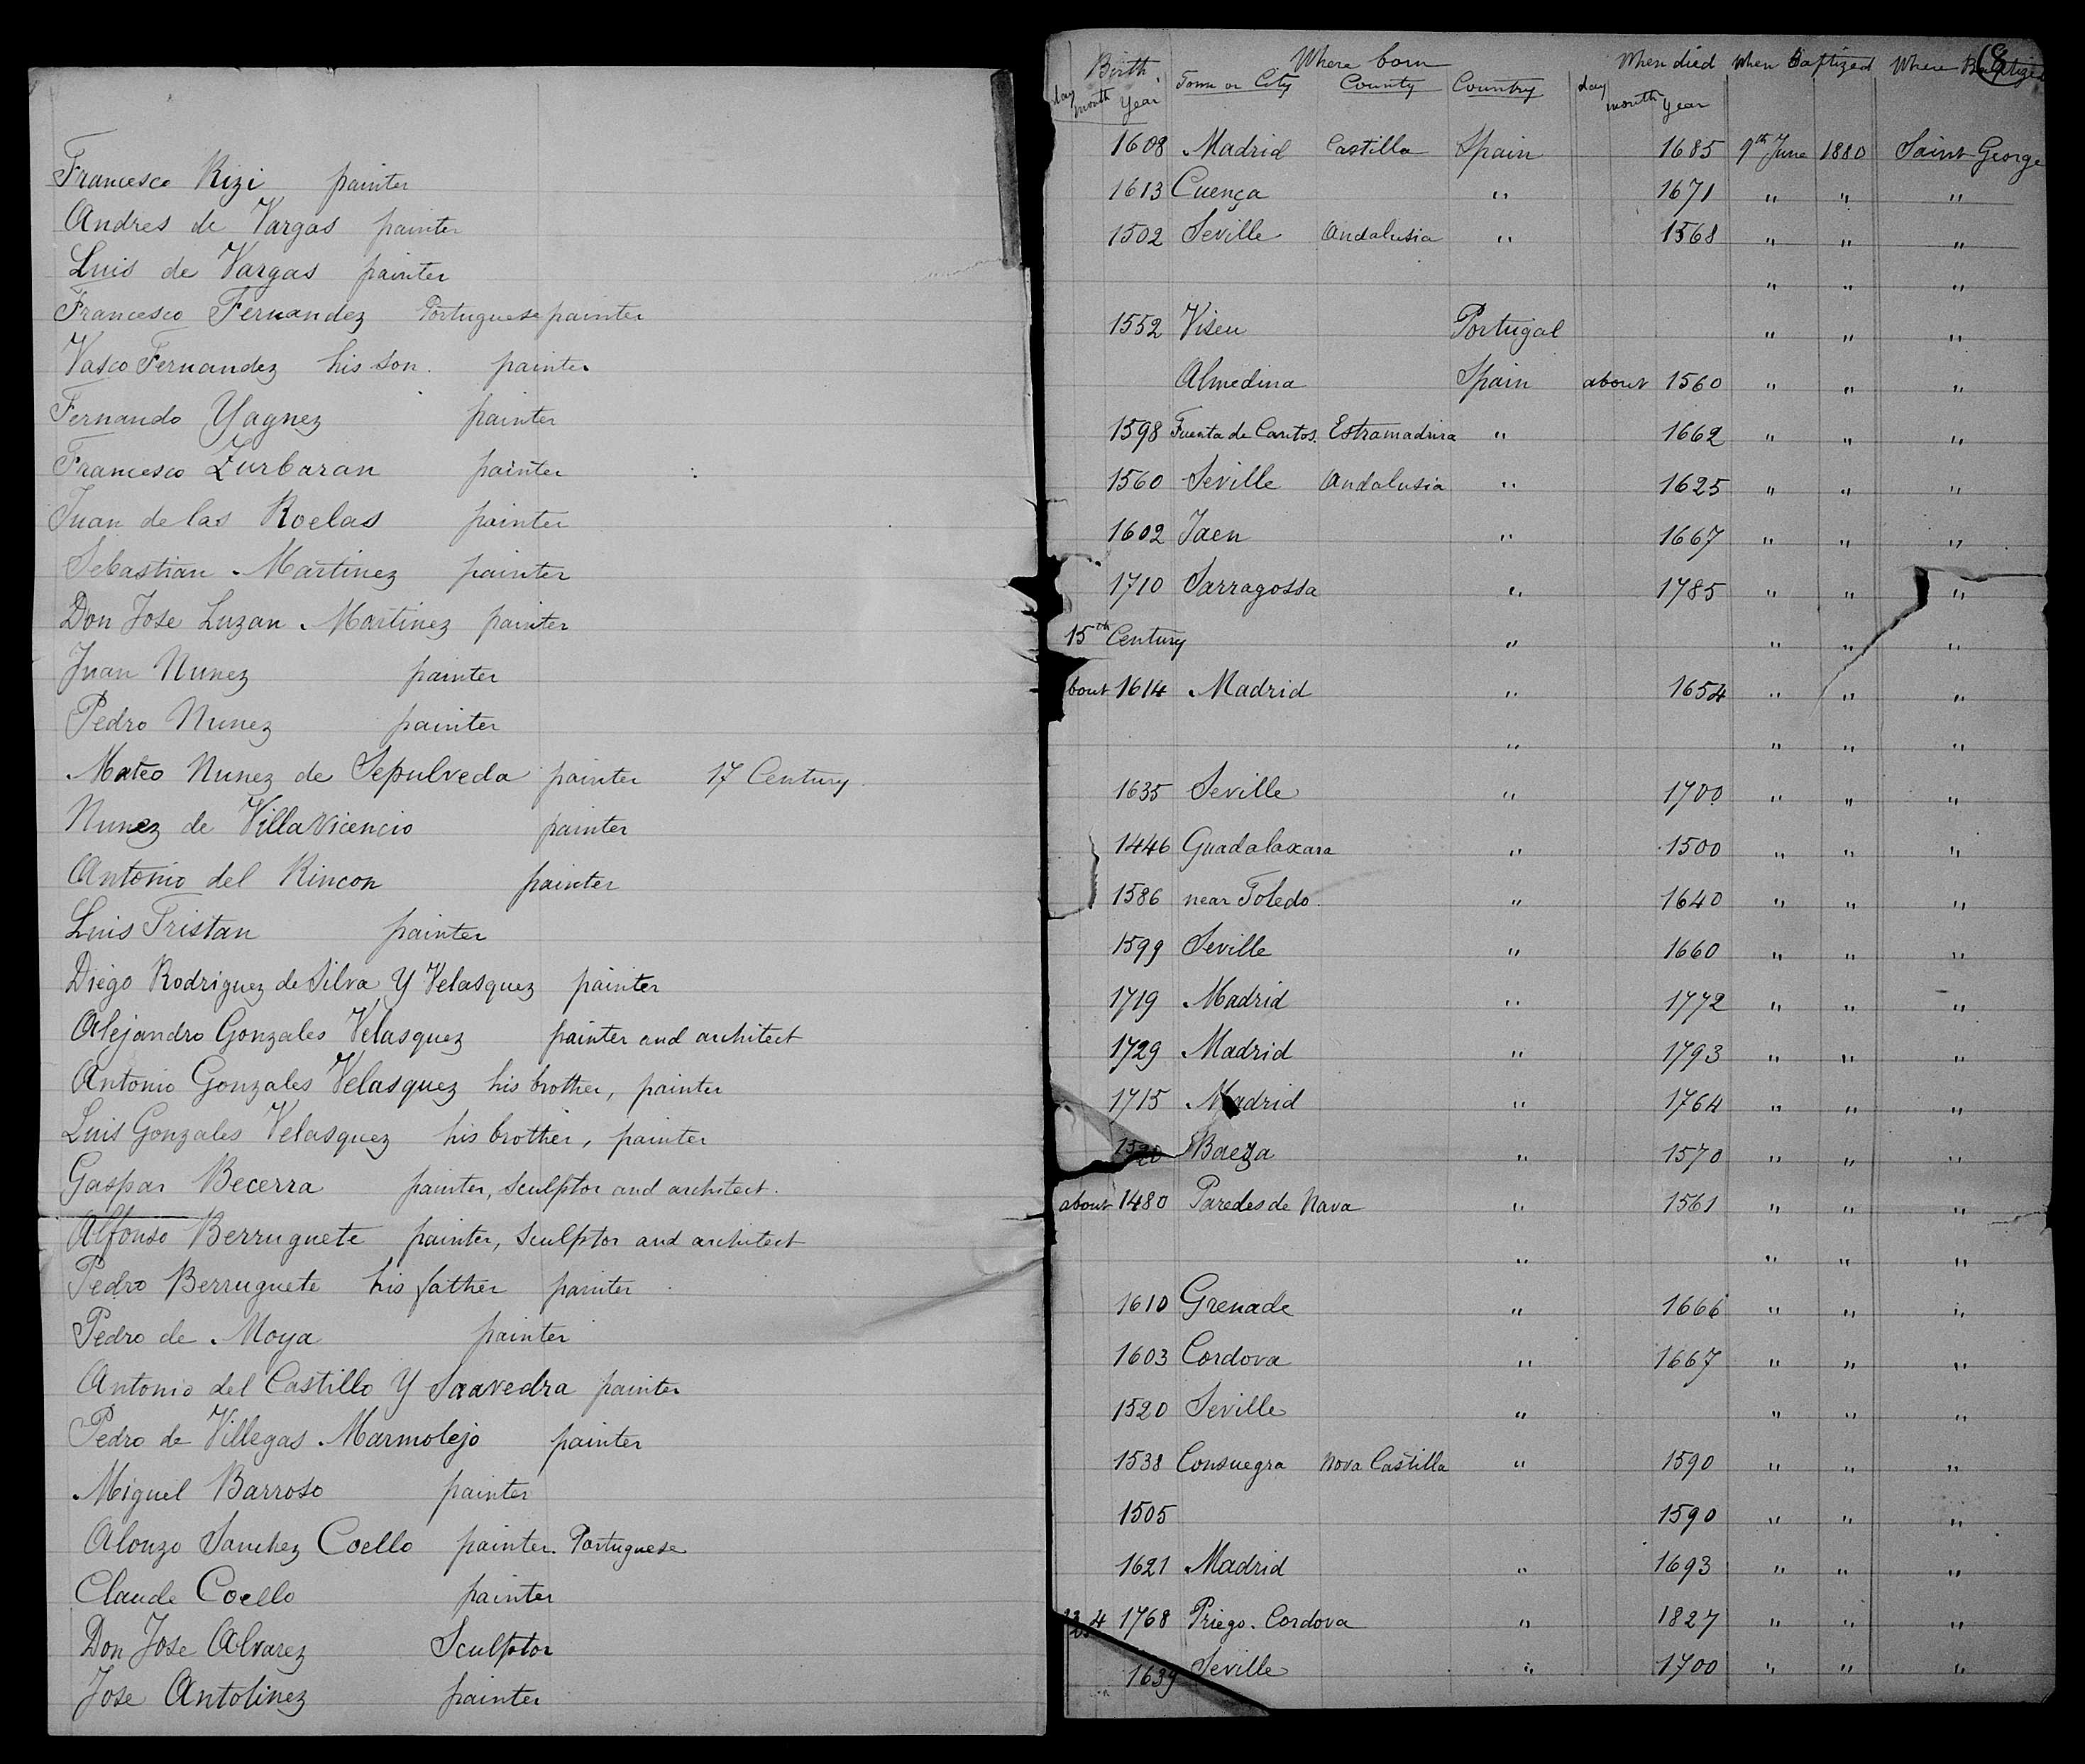 Francesco Rizi painter
Andres de Vargas painter
Luis de Vargas painter
Francesco Fernandez Portuguese painter
Vasco Fernandez his son. painter
Fernando Yagnez painter
Francesco Zurbaran painter
Juan de las Roelas painter
Sebastian Martinez painter
Don Jose Luzan Martinez painter
Juan Nunez painter
Pedro Nunez painter
Mateo Nunez de Sepulveda painter 17 Century
Nunez de Villavicencio painter
Antonio del Rincon painter
Luis Tristan painter
Diego Rodriguez de Silva Y Velasquez painter
Alejandro Gonzales Velasquez painter and architect
Antonio Gonzales Velasquez his brother, painter
Luis Gonzales Velasquez his brother, painter
Gaspar Becerra painter, sculptor and architect.
Alfonso Berruguete painter, sculptor and architect
Pedro Berruguete his father painter
Pedro de Moya painter
Antonio del Castillo Y Saavedra painter
Pedro de Villegas Marmolejo painter
Miguel Barroso painter
Alonzo Sanchez Coello painter. Portuguese
Claude Coello painter
Don Jose Alvarez Sculptor
Jose Antolinez painter
8
Birth. Where born When died When Baptized Where Baptized
day month Year Town or City County Country day month Year
1608 Madrid Castilla Spain 1685 9th June 1880 Saint George
1613 Cuença " 1671 " " "
1502 Seville Andalusia " 1568 " " "
" " "
1552 Viseu Portugal " " "
Almedina Spain about 1560 " " "
1598 Fuenta de Cantos. Estramadura " 1662 " " "
1560 Seville Andalusia " 1625 " " "
1602 Jaen " 1667 " " "
1710 Sarragossa " 1785 " " "
15th Century " " " "
bout 1614 Madrid " 1654 " " "
" " " "
1635 Seville " 1700 " " "
1446 Guadalaxara " 1500 " " "
1586 near Toledo. " 1640 " " "
1599 Seville " 1660 " " "
1719 Madrid " 1772 " " "
1729 Madrid " 1793 " " "
1715 Madrid " 1764 " " "
1520 Baeza " 1570 " " "
about 1480 Paredes de Nava " 1561 " " "
" " " "
1610 Grenade " 1666 " " "
1603 Cordova " 1667 " " "
1520 Seville " " " "
1538 Consuegra Nova Castilla " 1590 " " "
1505 1590 " " "
1621 Madrid " 1693 " " "
4 1768 Priego. Cordova " 1827 " " "
1639 Seville " 1700 " " "